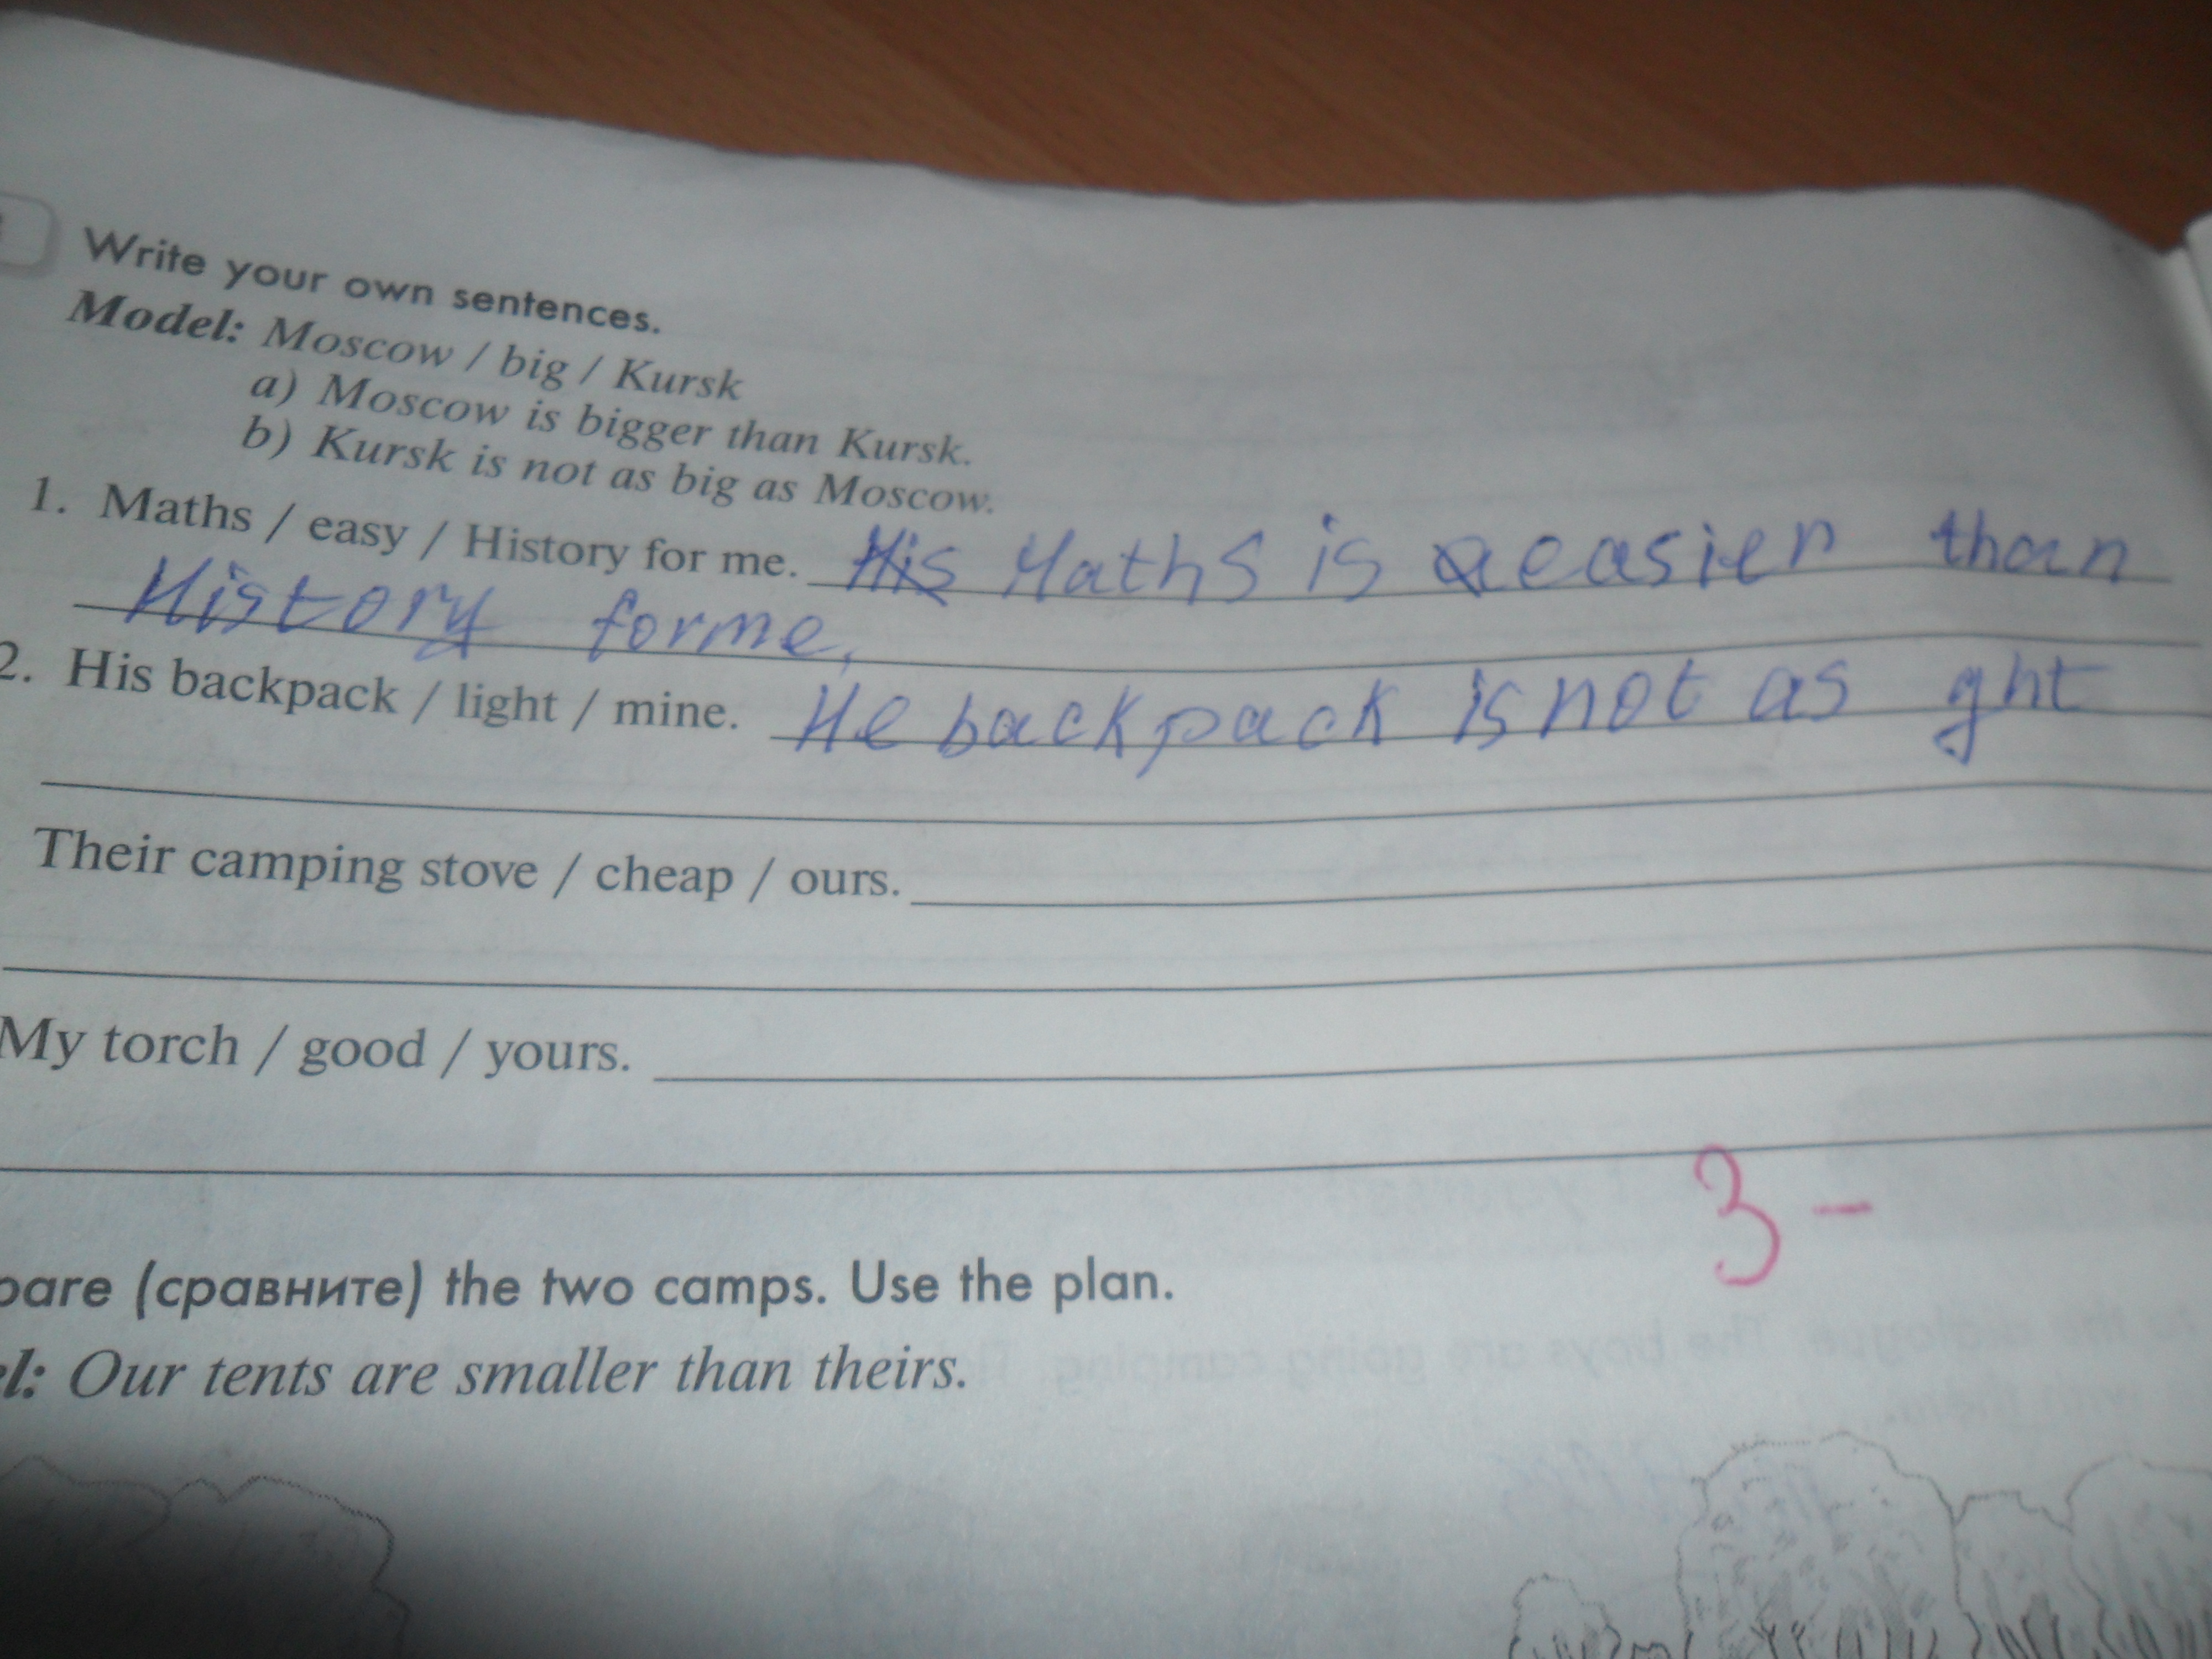 Write your own sentences.
Model: Moscow / big / Kursk
a) Moscow is bigger than Kursk.
b) Kursk is not as big as Moscow.
1. Maths / easy / History for me. His Maths is a easier than
History for me.
2. His backpack / light / mine. He backpack is not as ght
Their camping stove / cheap / ours.
My torch / good / yours.
3-
pare (сравните) the two camps. Use the plan.
el: Our tents are smaller than theirs.